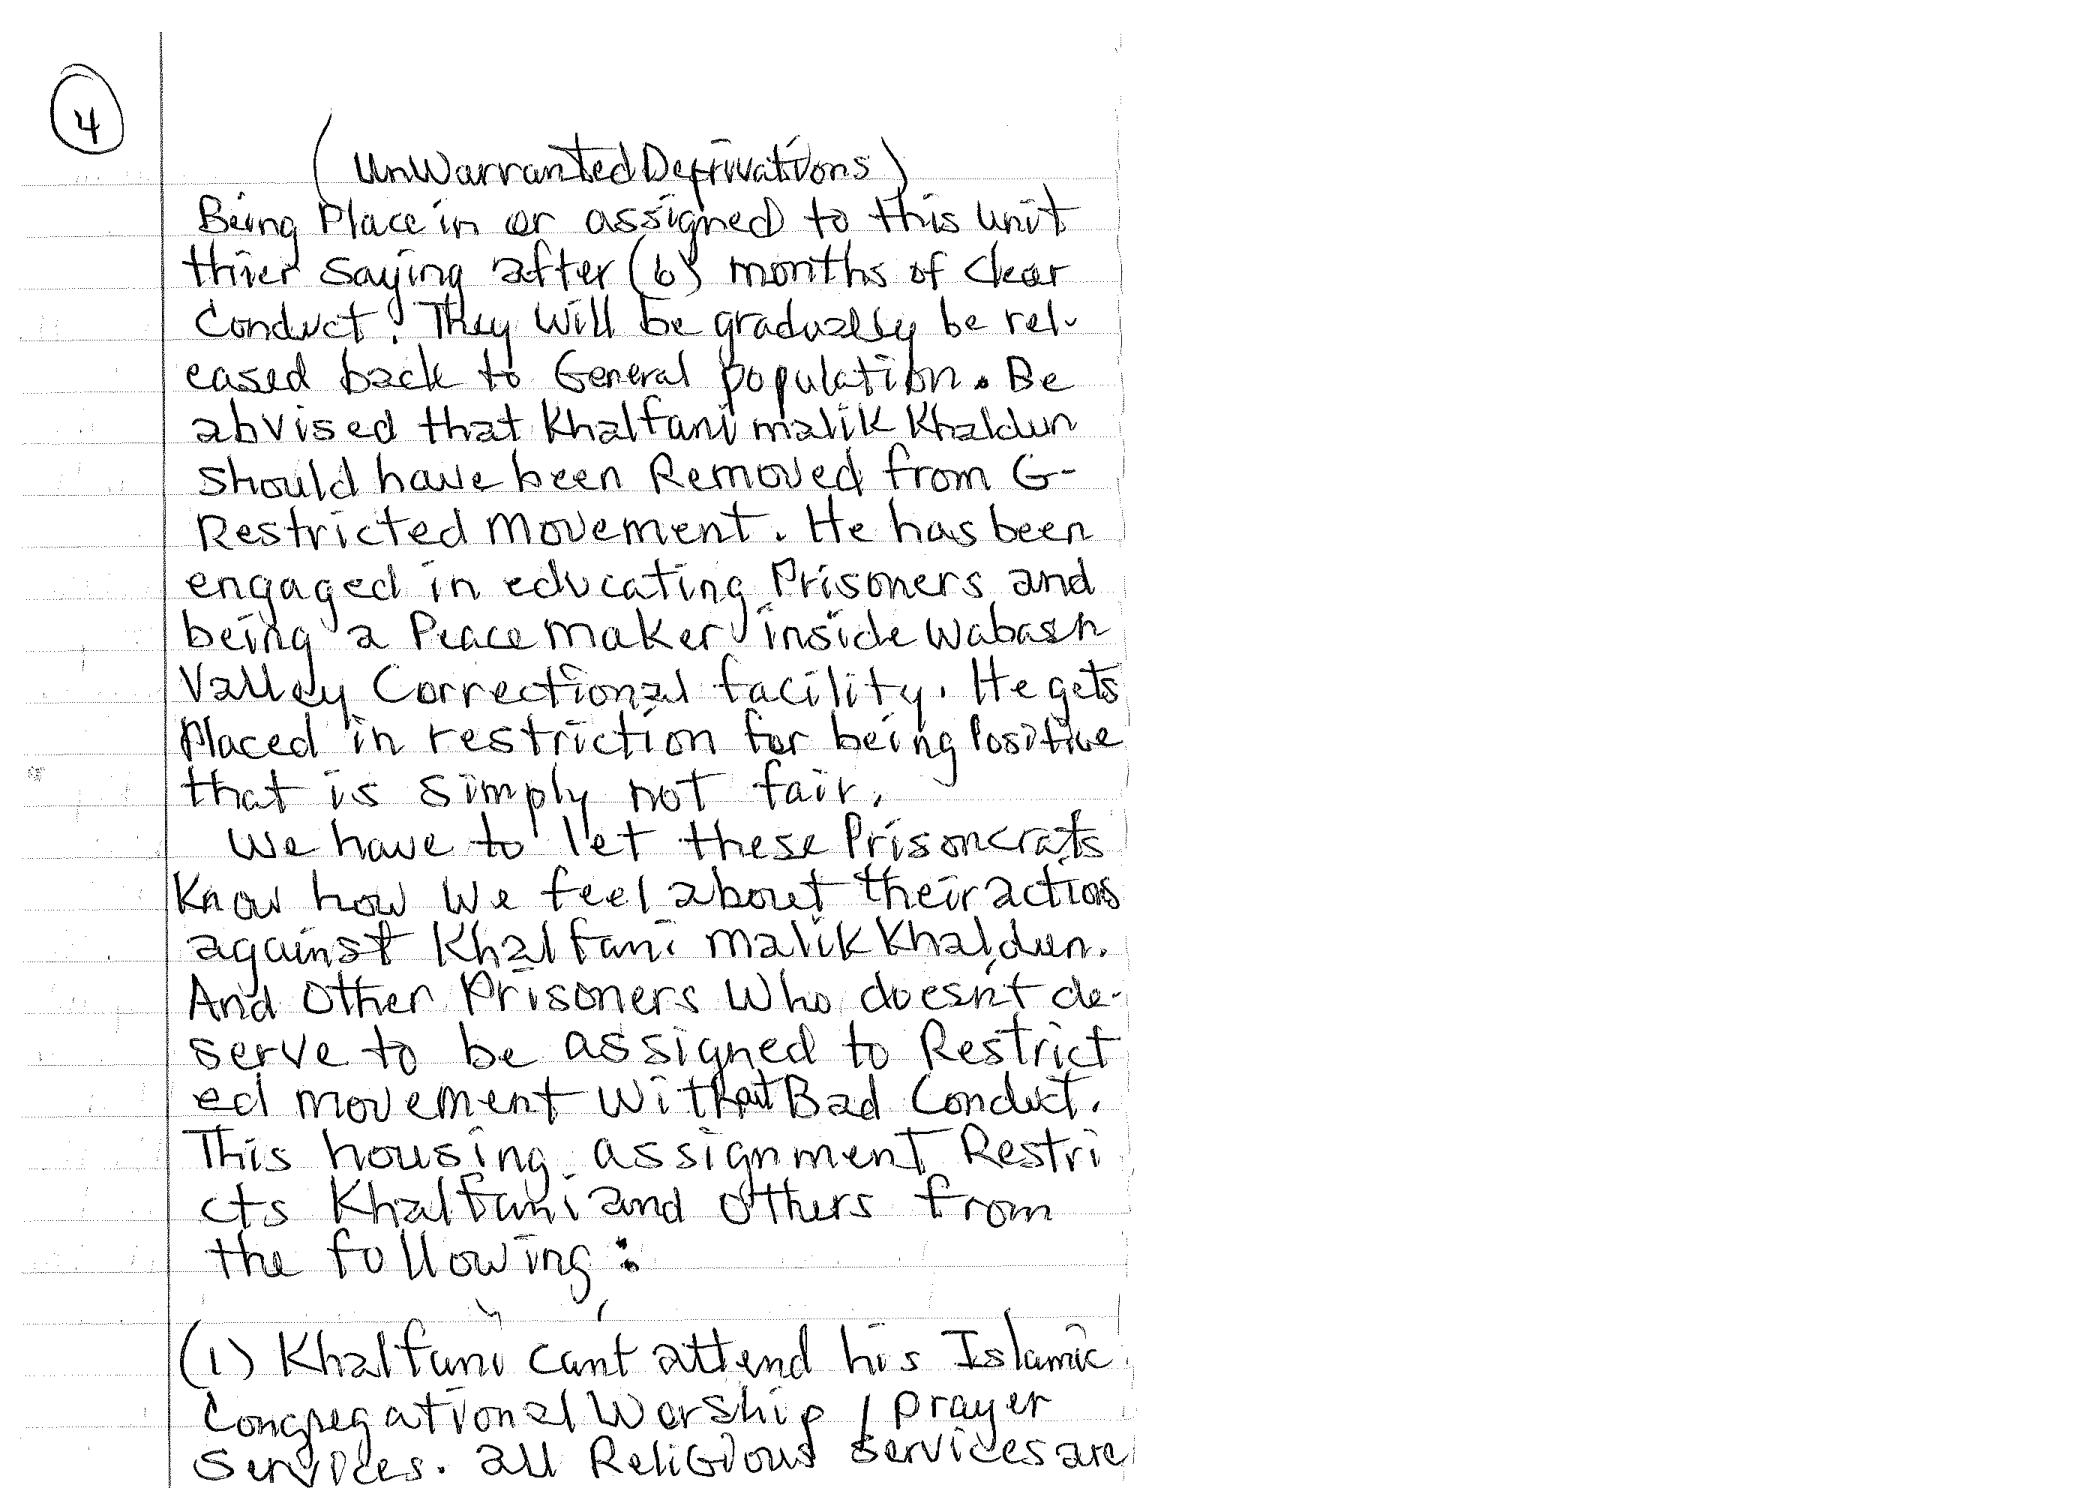 4
(UnWarranted Deprivations)
Being Place in or assigned to this unit
thier saying after (6) months of clear
Conduct. They will be gradually be rel-
eased back to General population. Be
abvised that Khalfani malik Khaldun
should have been Removed from G-
Restricted Movement. He has been
engaged in educating Prisoners and
being a Peace maker inside Wabash
Valley Correctional facility. He gets
placed in restriction for being Positive
that is simply not fair.
We have to let these Prisoncrats
Know how We feel about their actions
against Khalfani malik Khaldun.
And Other Prisoners Who doesn't de-
serve to be assigned to Restrict
ed movement Without Bad Conduct.
This housing assignment Restri
cts Khalfani and others from
the following:
(1) Khalfani cant attend his Islamic
Congregational Worship / prayer
Services. all Religious services are